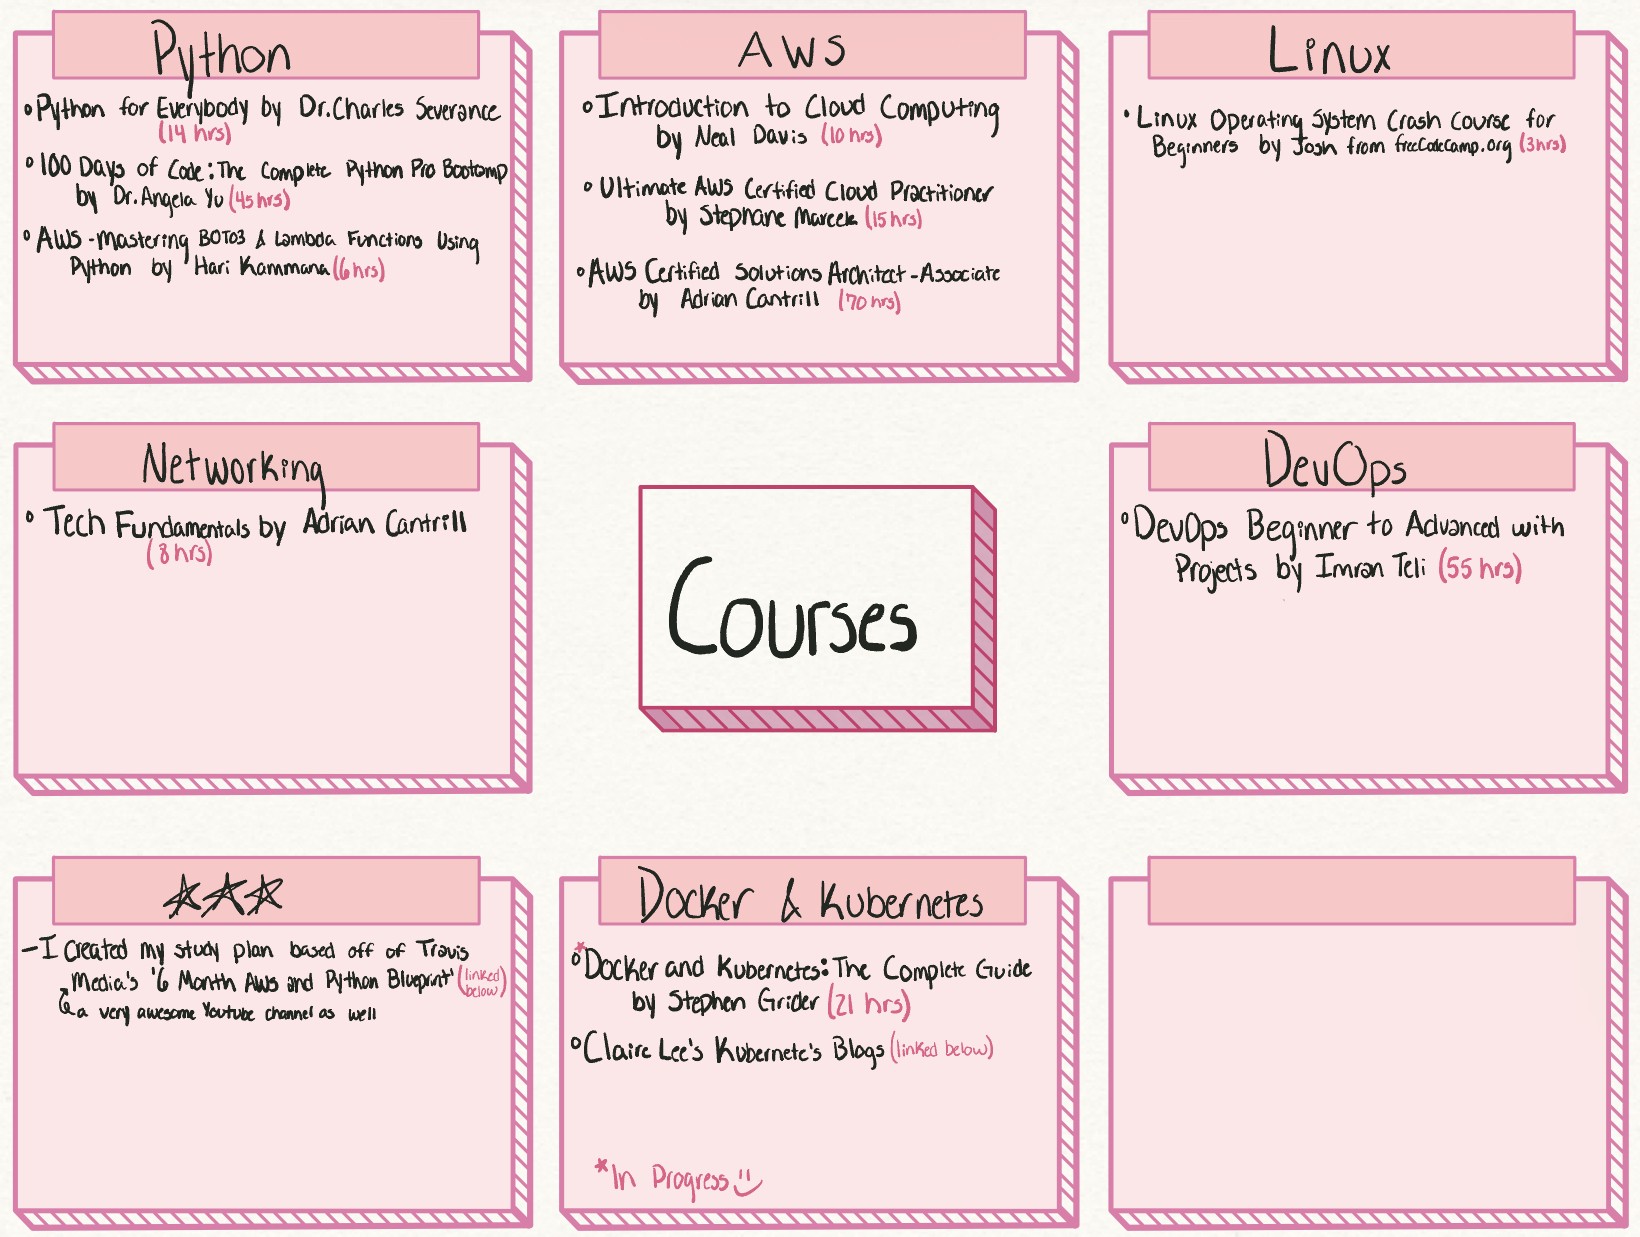 Python
Python for Everybody by Dr. Charles Severance
(14 hrs)
100 Days of Code: The Complete Python Pro Bootcamp
by Dr. Angela Yu (45 hrs)
AWS - Mastering BOTO3 & Lambda Functions Using
Python by Hari Kammana (6 hrs)
AWS
Introduction to Cloud Computing
by Neal Davis (10 hrs)
Ultimate AWS Certified Cloud Practitioner
by Stephane Mareek (15 hrs)
AWS Certified Solutions Architect - Associate
by Adrian Cantrill (70 hrs)
Linux
Linux Operating System Crash Course for
Beginners by Josh from freeCodeCamp.org (3 hrs)
Networking
Tech Fundamentals by Adrian Cantrill
(8 hrs)
Courses
DevOps
DevOps Beginner to Advanced with
Projects by Imran Teli (55 hrs)
- I Created my study plan based off of Travis
Media's '6 Month AWS and Python Blueprint' (linked
below)
a very awesome Youtube channel as well
Docker & Kubernetes
*Docker and Kubernetes: The Complete Guide
by Stephen Grider (21 hrs)
Claire Lee's Kubernete's Blogs (linked below)
*In Progress